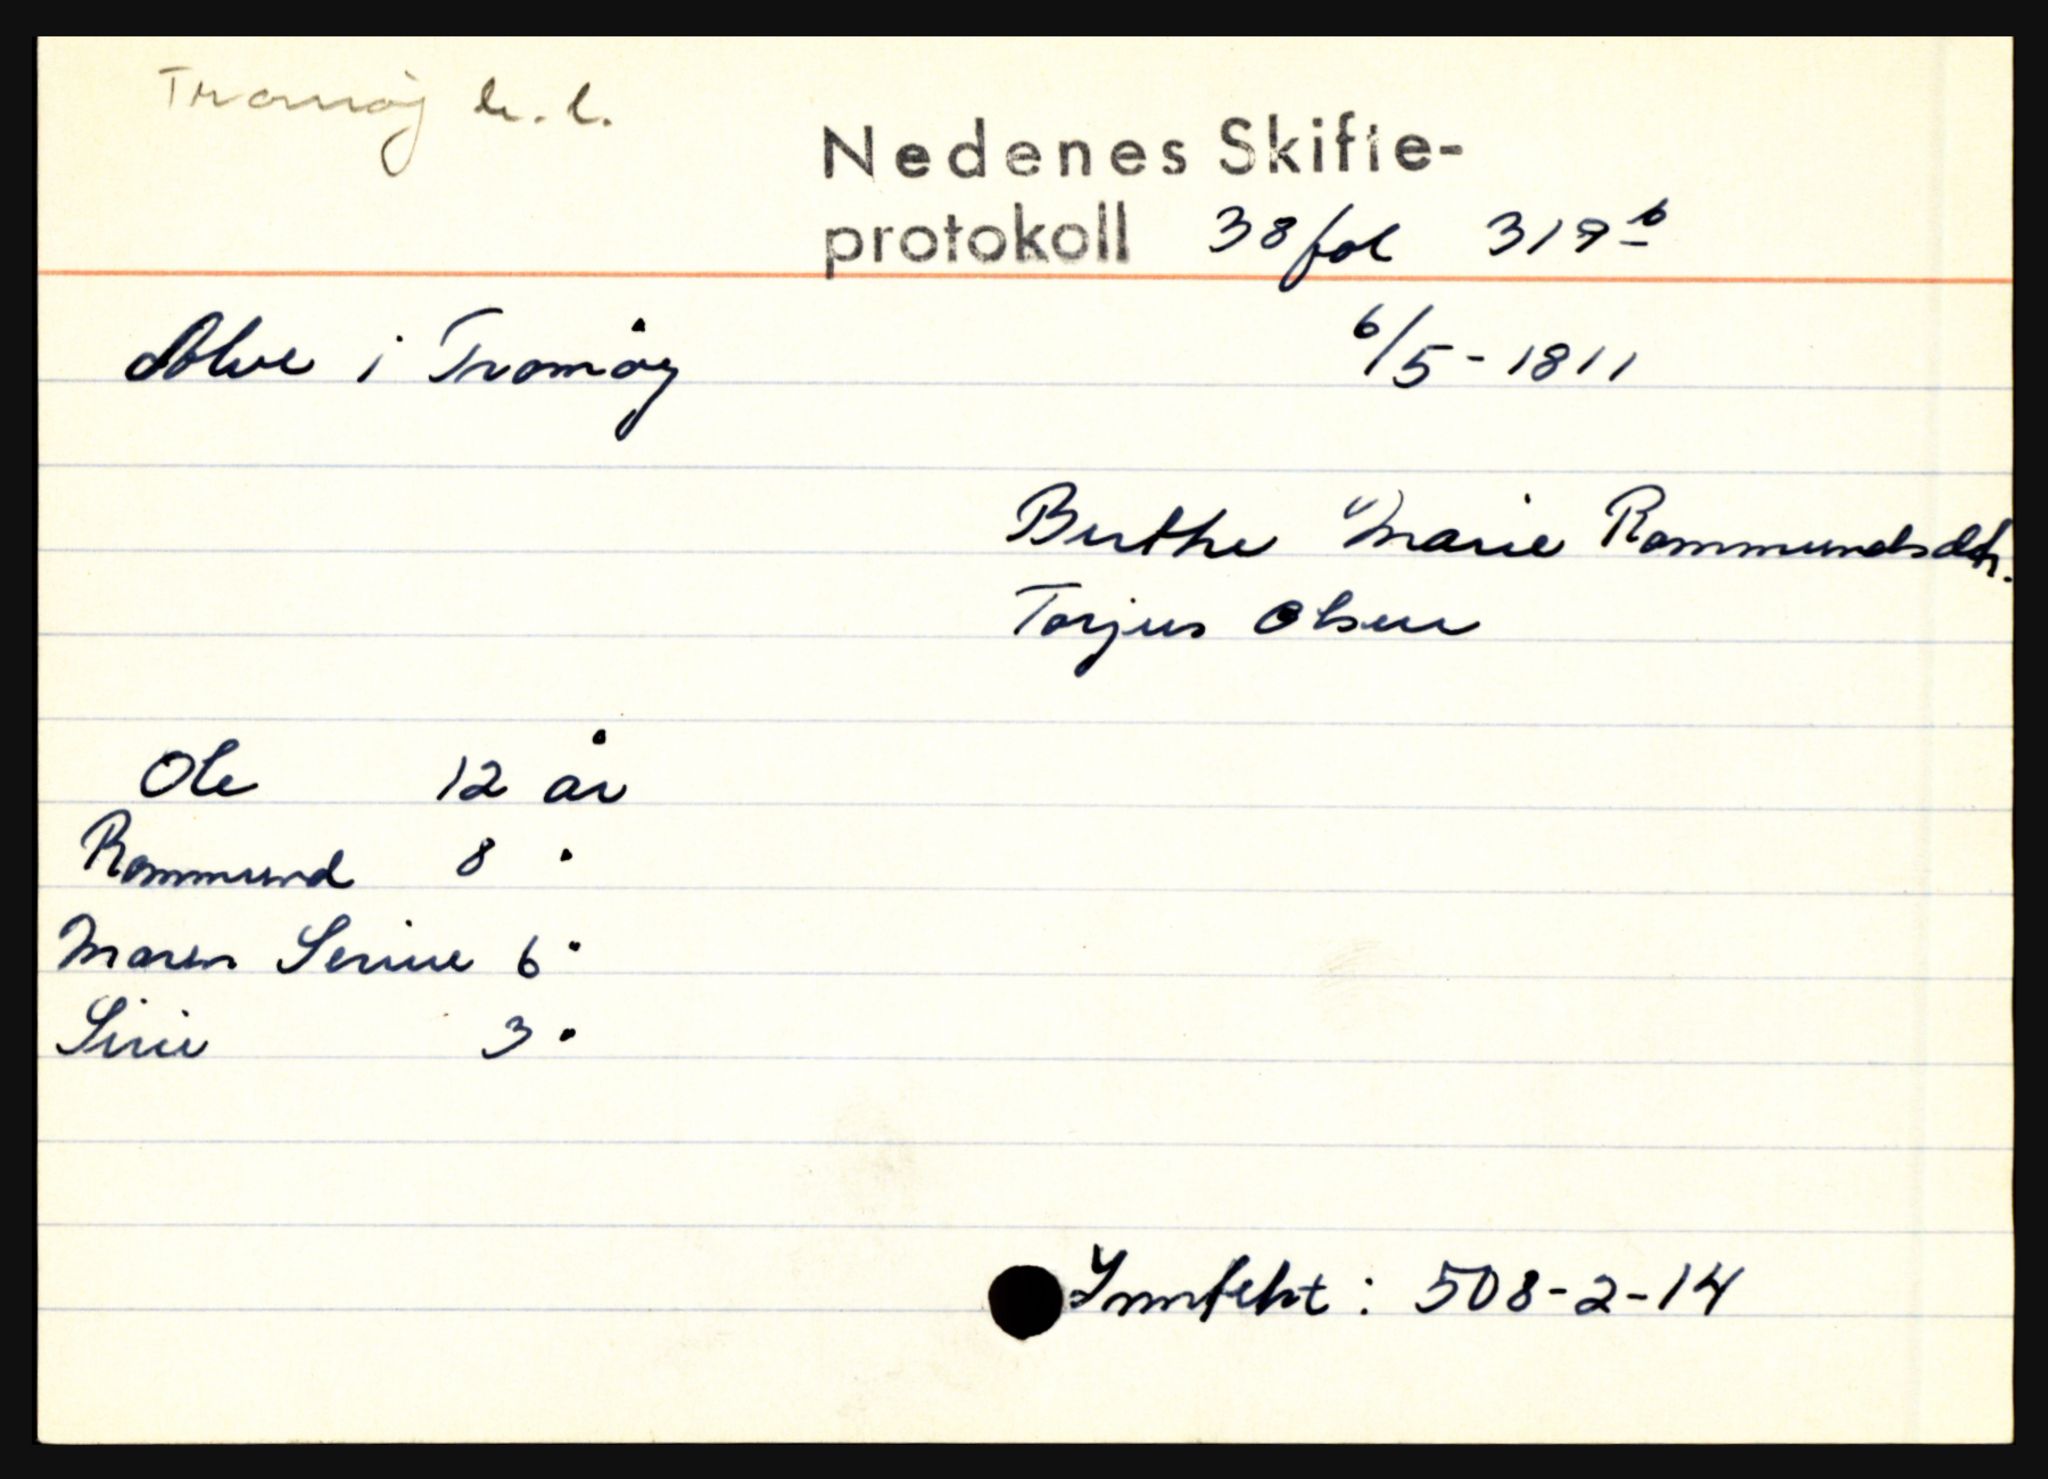 Tromøy h. l.
Nedenes Skifte-
protokoll 38 fol 319 b
Alve i Tromøy 6/5-1811
Berthe Marie Rommundsdtr.
Torjus Olsen
Ole 12 år
Rommund 8 "
Maren Serine 6 "
Sirie 3 "
Innfekt: 508-2-14